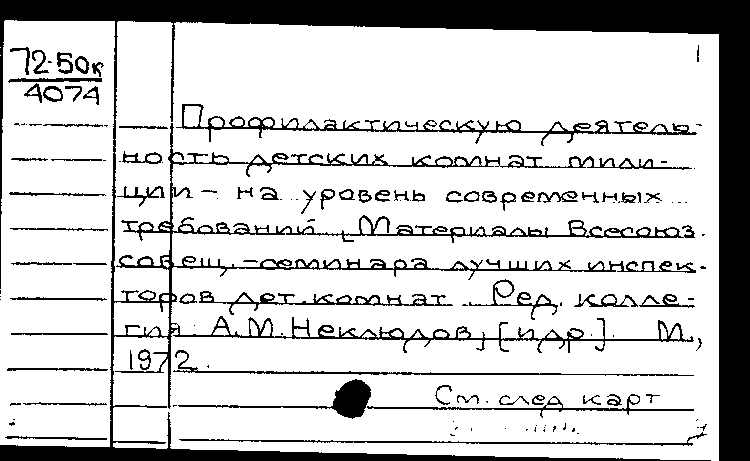 1
72-50к
4074
Профилактическую деятель-
ность детских комнат мили-
ции - на уровень современных
требований. [Материалы Всесоюз.
совещ.-семинара лучших инспек-
торов дет. комнат. Ред. колле-
гия: А.М.Неклюдов, [и др.]. М.,
1972.
См. след карт